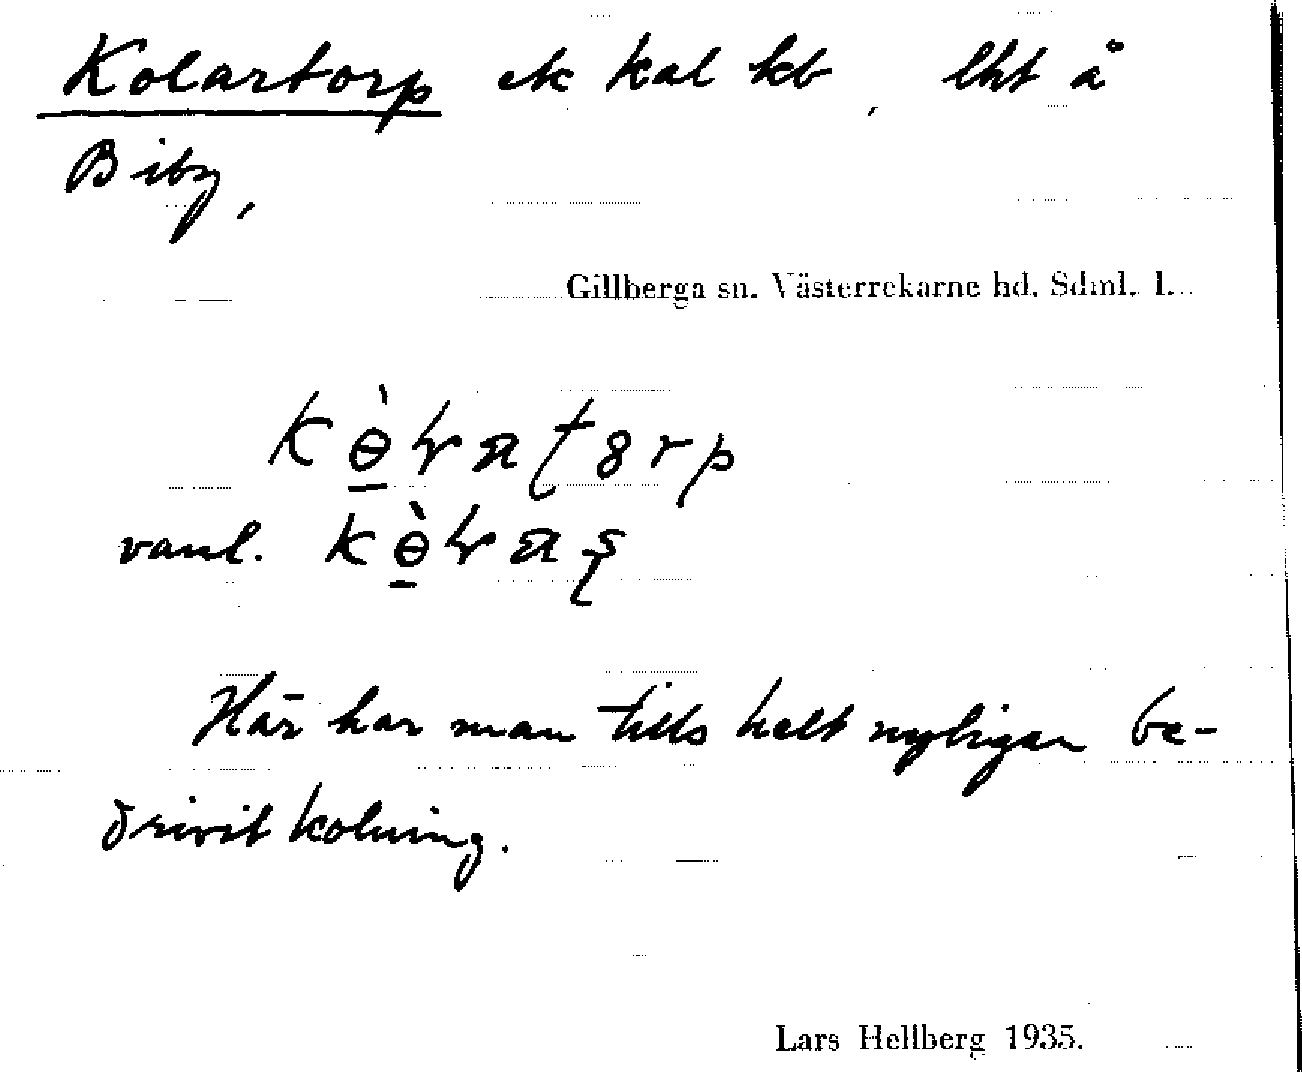 Kolartorp ek kal kb, lht å
Biby,
Gillberga sn. Västerrekarne hd. Sdml. l.
vanl.
Här har man tills helt nyligen be-
drivit kolning.
Lars Hellberg 1935.